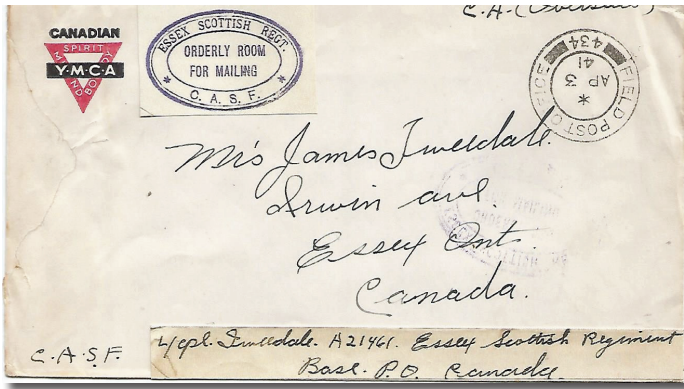 C.A. (Overseas)
CANADIAN
SPIRIT
Y·M·C·A
MIND
BODY
ESSEX SCOTTISH REGT.
ORDERLY ROOM
FOR MAILING
* C. A. S. F. *
FIELD POST OFFICE
434
*
AP 3
41
Mrs James Tweedale.
Irwin ave.
Essex Ont.
Canada.
C.A.S.F.
L/cpl. Tweedale. A21461. Essex Scottish Regiment
Base. P.O. Canada.